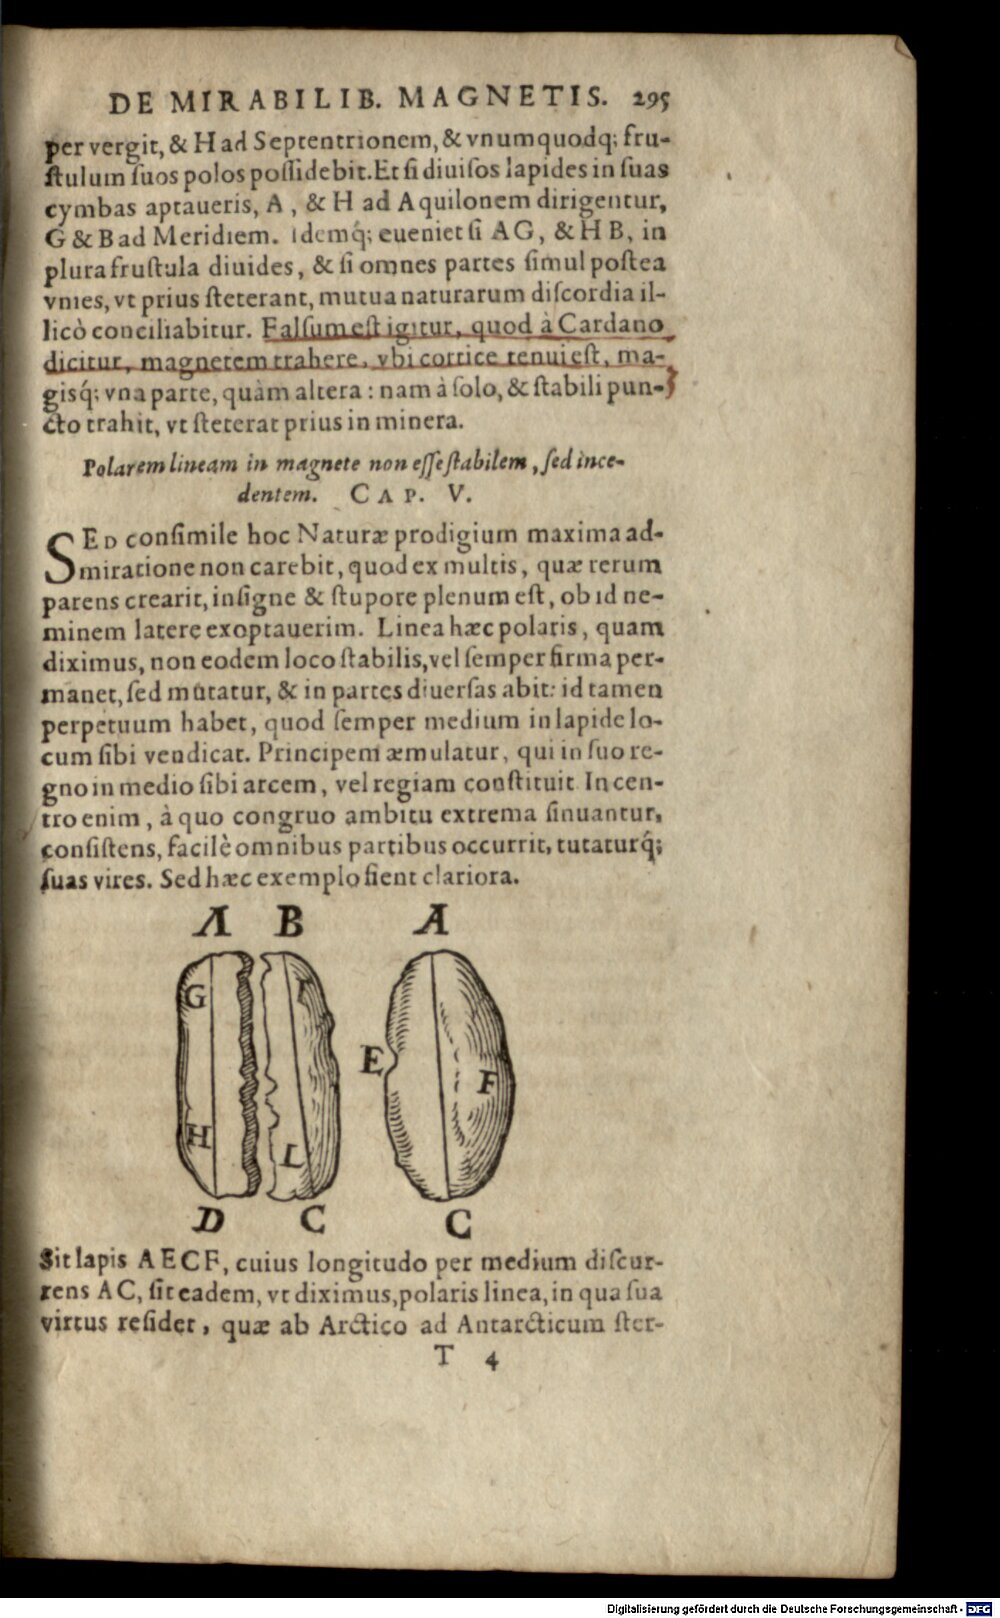 DE MIRABILIB. MAGNETIS. 295
per vergit, & H ad Septentrionem, & vnumquodq; fru-
ſtulum ſuos polos poſſidebit. Et ſi diuiſos lapides in ſuas
cymbas aptaueris, A, & H ad Aquilonem dirigentur,
G & B ad Meridiem. Idemq́; eueniet ſi A G, & H B, in
plura fruſtula diuides, & ſi omnes partes ſimul poſtea
vnies, vt prius ſteterant, mutua naturarum diſcordia il-
licò conciliabitur. Falſum eſt igitur, quod à Cardano
dicitur, magnetem trahere, vbi cortice tenui eſt, ma-
gisq́; vna parte, quàm altera: nam à ſolo, & ſtabili pun-
cto trahit, vt ſteterat prius in minera.
Polarem lineam in magnete non eſſe ſtabilem, ſed ince-
dentem. CAP. V.
SED conſimile hoc Naturæ prodigium maxima ad-
miratione non carebit, quod ex multis, quæ rerum
parens crearit, inſigne & ſtupore plenum eſt, ob id ne-
minem latere exoptauerim. Linea hæc polaris, quam
diximus, non eodem loco ſtabilis, vel ſemper firma per-
manet, ſed mutatur, & in partes diuerſas abit: id tamen
perpetuum habet, quod ſemper medium in lapide lo-
cum ſibi vendicat. Principem æmulatur, qui in ſuo re-
gno in medio ſibi arcem, vel regiam conſtituit. In cen-
tro enim, à quo congruo ambitu extrema ſinuantur,
conſiſtens, facilè omnibus partibus occurrit, tutaturq́;
ſuas vires. Sed hæc exemplo fient clariora.
A B A
G I
E F
H L
D C C
Sit lapis A E C F, cuius longitudo per medium diſcur-
rens A C, ſit eadem, vt diximus, polaris linea, in qua ſua
virtus reſidet, quæ ab Arctico ad Antarcticum ſter-
T 4
Digitalisierung gefördert durch die Deutsche Forschungsgemeinschaft - DFG